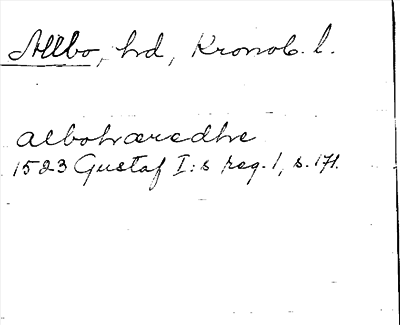 Allbo, hd, Kronob. l.
albohæredhe
1523 Gustaf I:s reg. 1, s. 171.